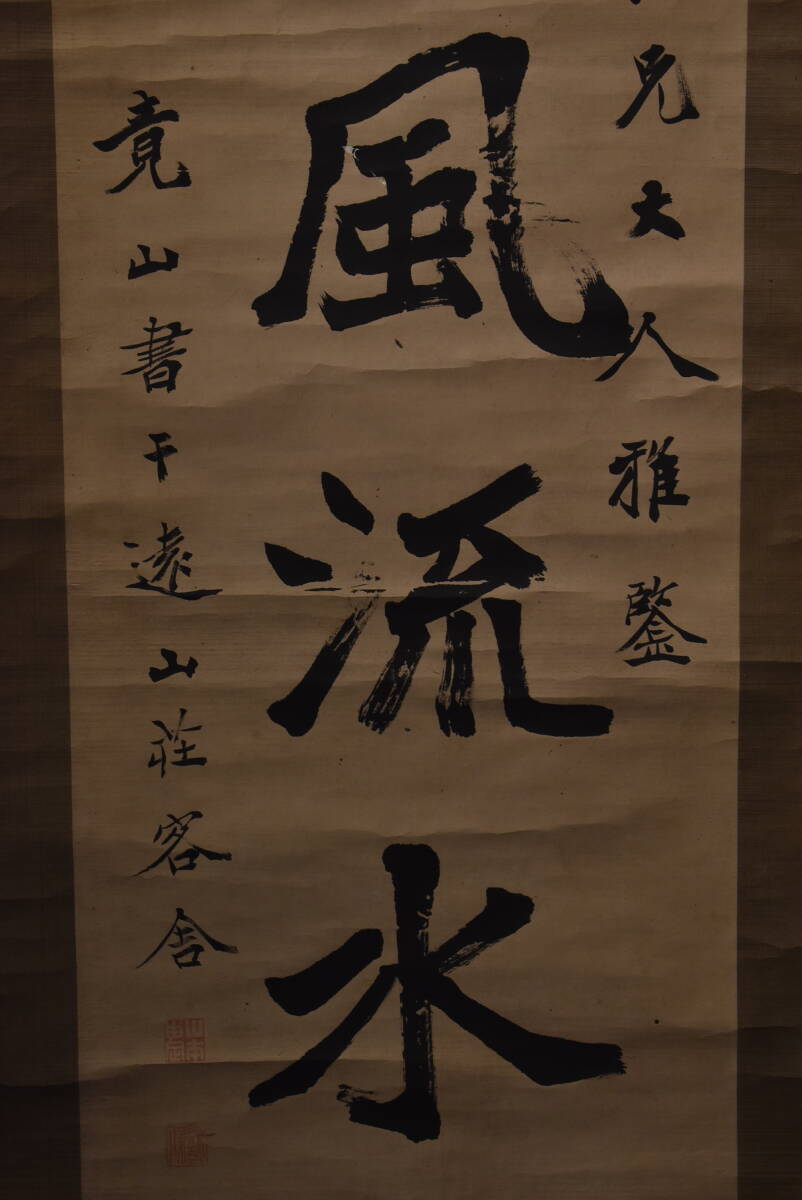 兄大人雅鑒
風流水
竟山書于遠山荘客舎